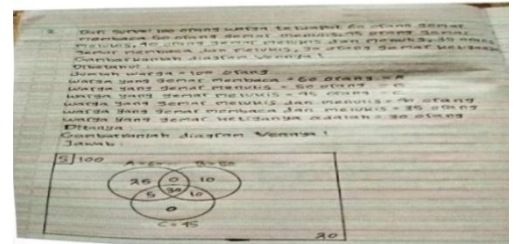 2. Dari survei 100 orang warga terdapat 60 orang gemar
membaca 50 orang gemar menulis, 45 orang gemar
melukis, 40 orang gemar melukis dan menulis, 35 orang
gemar membaca dan melukis, 30 orang gemar ketiganya
Gambarkanlah diagram Venn nya!
Diketahui:
Jumlah warga = 100 orang
warga yang gemar membaca = 60 orang = A
warga yang gemar menulis = 50 orang = B
warga yang gemar melukis = 45 orang = C
warga yang gemar melukis dan menulis = 40 orang
warga yang gemar membaca dan melukis = 35 orang
warga yang gemar ketiganya adalah = 30 orang
Ditanya:
Gambarkanlah diagram Vennnya!
Jawab:
S 100
A = 60 B = 50
25 0 10
5 30 10
0
C = 45
20